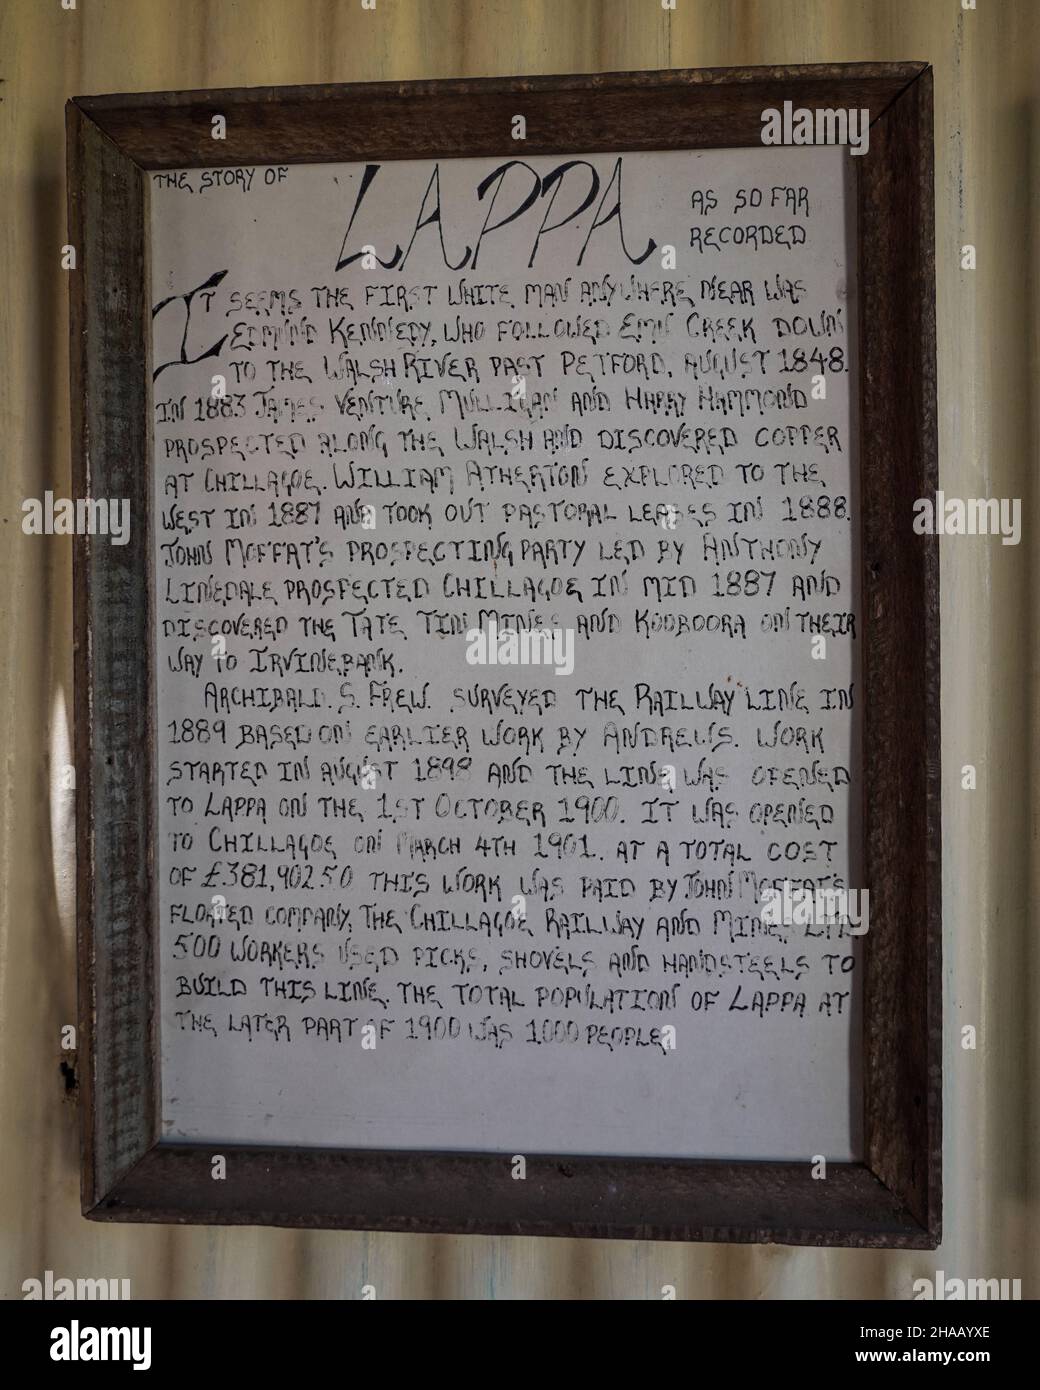 THE STORY OF LAPPA AS SO FAR
RECORDED
IT SEEMS THE FIRST WHITE MAN ANYWHERE NEAR WAS
EDMUND KENNEDY, WHO FOLLOWED EMU CREEK DOWN
TO THE WALSH RIVER PAST PETFORD, AUGUST 1848.
IN 1883 JAMES VENTURE MULLIGAN AND HARRY HAMMOND
PROSPECTED ALONG THE WALSH AND DISCOVERED COPPER
AT CHILLAGOE. WILLIAM ATHERTON EXPLORED TO THE
WEST IN 1887 AND TOOK OUT PASTORAL LEASES IN 1888.
JOHN MOFFAT'S PROSPECTING PARTY LED BY ANTHONY
LINEDALE PROSPECTED CHILLAGOE IN MID 1887 AND
DISCOVERED THE TATE TIN MINES AND KOOBOORA ON THEIR
WAY TO IRVINEBANK.
ARCHIBALD. S. FREW. SURVEYED THE RAILWAY LINE IN
1889 BASED ON EARLIER WORK BY ANDREWS. WORK
STARTED IN AUGUST 1898 AND THE LINE WAS OPENED
TO LAPPA ON THE 1ST OCTOBER 1900. IT WAS OPENED
TO CHILLAGOE ON MARCH 4TH 1901. AT A TOTAL COST
OF £381,902.50 THIS WORK WAS PAID BY JOHN MOFFAT'S
FLOATED COMPANY, THE CHILLAGOE RAILWAY AND MINES LTD.
500 WORKERS USED PICKS, SHOVELS AND HANDSTEELS TO
BUILD THIS LINE. THE TOTAL POPULATION OF LAPPA AT
THE LATER PART OF 1900 WAS 1000 PEOPLE
alamy
Image ID: 2HAAYXE
www.alamy.com